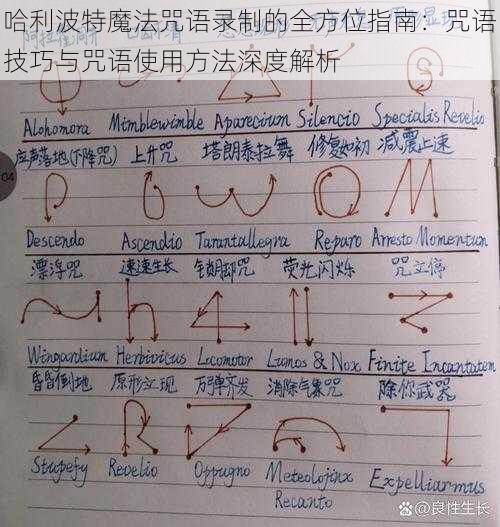 哈利波特魔法咒语录制的全方位指南：咒语
技巧与咒语使用方法深度解析
Alohomora Mimblewimble Aparecium Silencio Specialis Revelio
应声落地(下降咒) 上升咒 塔朗泰拉舞 修复如初 减震止速
04
Descendo Ascendio Tarantallegra Reparo Arresto Momentum
漂浮咒 速速生长 锁脚咒 荧光闪烁 咒立停
Wingardium Herbivicus Locomotor Lumos & Nox Finite Incantatem
昏昏倒地 原形立现 万弹齐发 消除气象咒 除你武器
Stupefy Revelio Oppugno Meteolojinx Expelliarmus
Recanto
良性生长